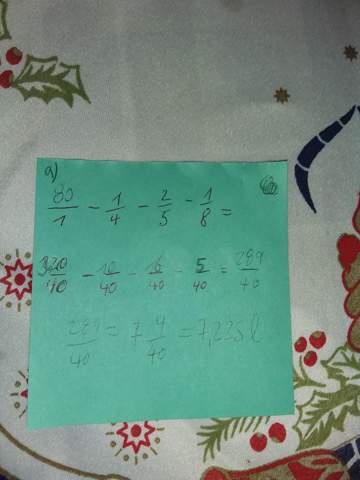 a)
80/1 - 1/4 - 2/5 - 1/8 =
320/40 - 10/40 - 16/40 - 5/40 = 289/40
289/40 = 7 9/40 = 7,225 l